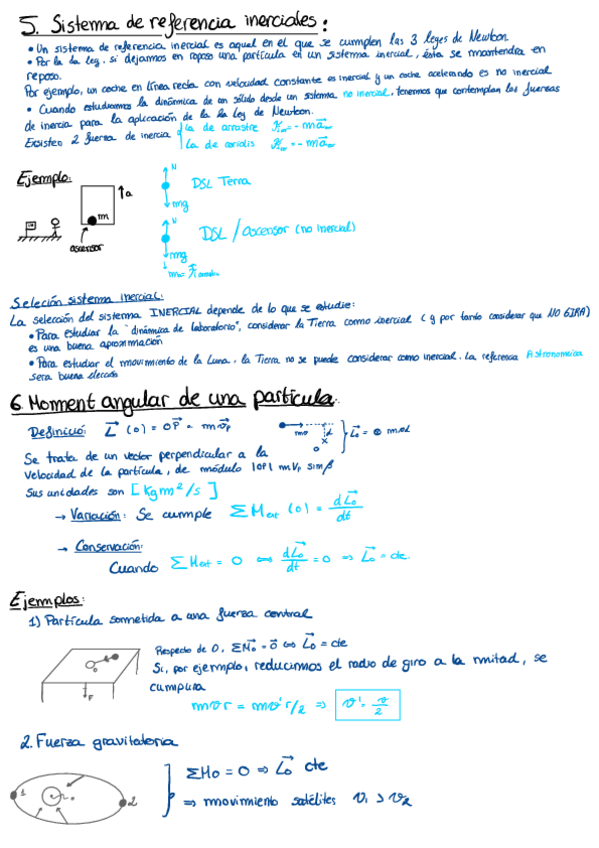 5. Sistema de referencia inerciales:
• Un sistema de referencia inercial es aquel en el que se cumplen las 3 leyes de Newton.
• Por la 1a ley. si dejamos en reposo una partícula en un sistema inercial, ésta se mantendrá en
reposo.
Por ejemplo, un coche en línea recta con velocidad constante es inercial y un coche acelerado es no inercial
• Cuando estudiamos la dinámica de un sólido desde un sistema no inercial, tenemos que contemplar las fuerzas
de inercia para la aplicación de la 2a ley de Newton.
Existen 2 fuerza de inercia
la de arrastre = -m
la de coriolis = -m
Ejemplo:
a
m
ascensor
N
DSL Terra
mg
N
DSL / ascensor (no inercial)
mg
Seleción sistema inercial:
La selección del sistema INERCIAL depende de lo que se estudie:
• Para estudiar la "dinámica de laboratorio", considerar la Tierra como inercial (y por tanto considerar que NO GIRA)
es una buena aproximación
• Para estudiar el movimiento de la Luna, la Tierra no se puede considerar como inercial. La referencia Astronomica
sera buena elección
6. Moment angular de una partícula.
Definició: L (o) = OP = m vp
mv
d
o
Lo = ⊗ mvd
Se trata de un vector perpendicular a la
velocidad de la partícula, de módulo |OP| m Vp sin β
Sus unidades son [Kgm²/s]
→ Variación: Se cumple ΣMext (o) = dLo/dt
→ Conservación:
Cuando ΣMext = 0 ⟺ dLo/dt = 0 ⇒ Lo = cte.
Ejemplos:
1) Partícula sometida a una fuerza central
o
F
Respecto de O, ΣMo = 0 ⟺ Lo = cte
Si, por ejemplo, reducimos el radio de giro a la mitad, se
cumplira
mvr = mv' r/2 ⇒ v' = v/2
2. Fuerza gravitatoria
1
2
ΣMo = 0 ⇒ Lo cte
⇒ movimiento satélites v1 > v2